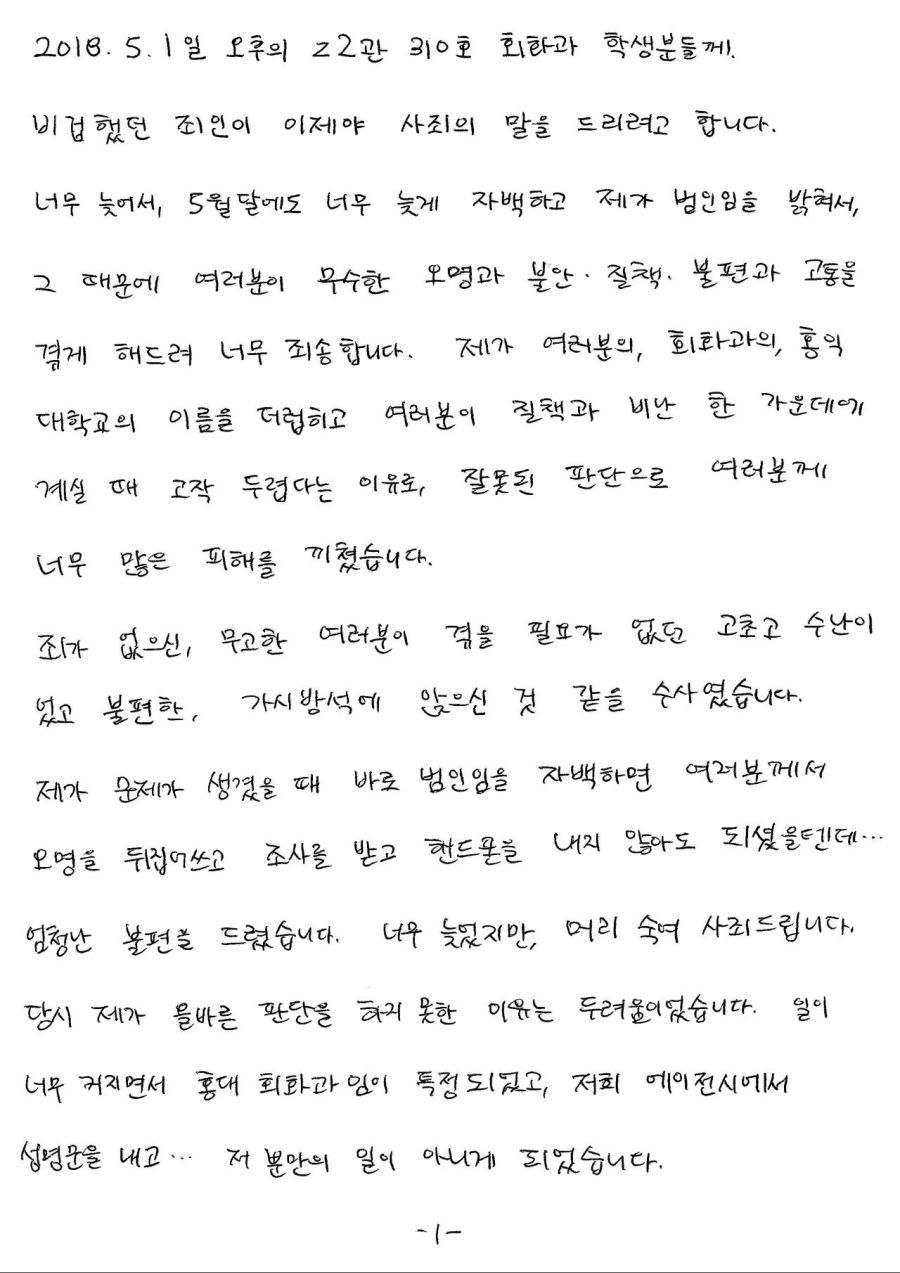 2018. 5. 1일 오후의 Z2관 310호 회화과 학생분들께.
비겁했던 죄인이 이제야 사죄의 말을 드리려고 합니다.
너무 늦어서, 5월달에도 너무 늦게 자백하고 제가 범인임을 밝혀서,
그 때문에 여러분이 무수한 오명과 불안·질책·불편과 고통을
겪게 해드려 너무 죄송합니다. 제가 여러분의, 회화과의, 홍익
대학교의 이름을 더럽히고 여러분이 질책과 비난 한 가운데에
계실 때 고작 두렵다는 이유로, 잘못된 판단으로 여러분께
너무 많은 피해를 끼쳤습니다.
죄가 없으신, 무고한 여러분이 겪을 필요가 없던 고초고 수난이
었고 불편한, 가시방석에 앉으신 것 같을 수사였습니다.
제가 문제가 생겼을 때 바로 범인임을 자백하면 여러분께서
오명을 뒤집어쓰고 조사를 받고 핸드폰을 내지 않아도 되셨을텐데…
엄청난 불편을 드렸습니다. 너무 늦었지만, 머리 숙여 사죄드립니다.
당시 제가 올바른 판단을 하지 못한 이유는 두려움이었습니다. 일이
너무 커지면서 홍대 회화과임이 특정되었고, 저희 에이전시에서
성명문을 내고… 저 뿐만의 일이 아니게 되었습니다.
-1-